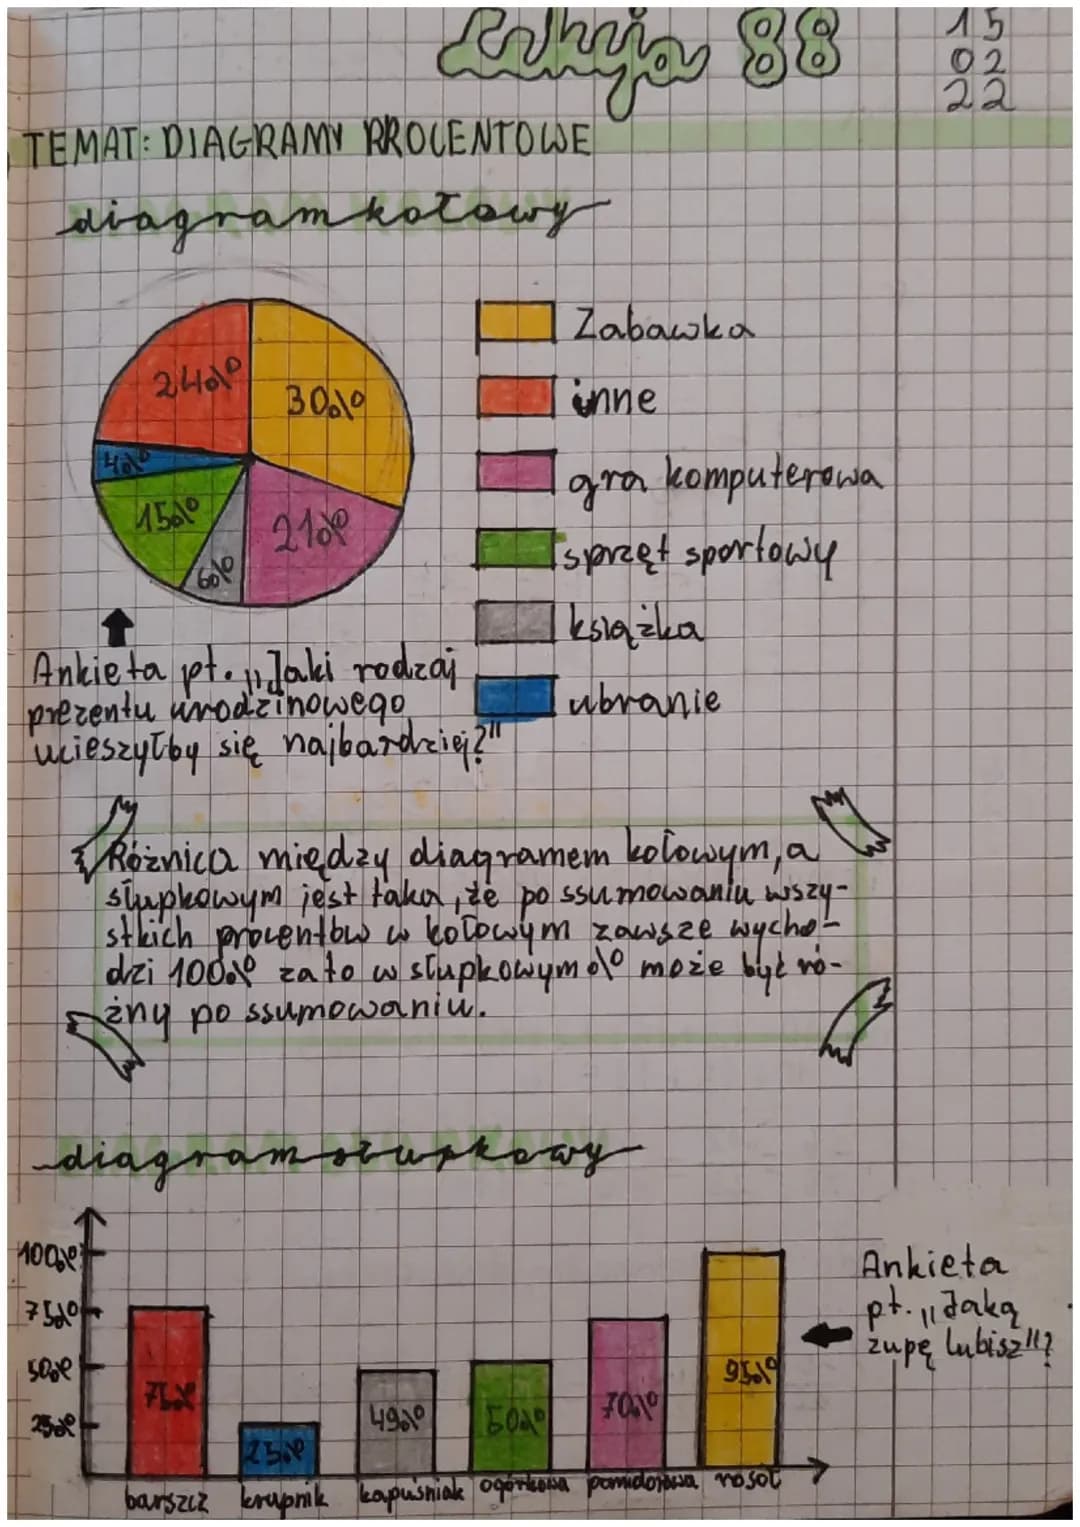 Lekcja 88
15
02
22
TEMAT: DIAGRAMY PROCENTOWE
diagram kołowy
24%
30%
4%
15%
6%
21%
Zabawka
inne
gra komputerowa
sprzęt sportowy
książka
ubranie
Ankieta pt. „Jaki rodzaj
prezentu urodzinowego
ucieszyłby się najbardziej?"
Różnica między diagramem kołowym, a
słupkowym jest taka, że po ssumowaniu wszy-
stkich procentów w kołowym zawsze wycho-
dzi 100% za to w słupkowym % może być ró-
żny po ssumowaniu.
diagram słupkowy
100%
75%
50%
25%
75%
25%
49%
50%
70%
95%
barszcz krupnik kapuśniak ogórkowa pomidorowa rosół
Ankieta
pt. „Jaką
zupę lubisz"?